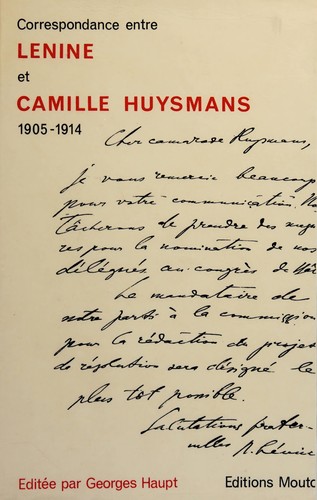 Correspondance entre
LENINE
et
CAMILLE HUYSMANS
1905-1914
Cher camarade Huysmans,
je vous remercie beaucoup
pour votre communication. No
tâcherons de prendre des mesu
res pour la nomination de nos
délégués au congrès de
Le mandataire de
notre parti à la commission
pour la rédaction du projet
de résolution sera désigné le
plus tot possible.
Salutations frater-
nelles N. Lénine
Editée par Georges Haupt
Editions Moutc